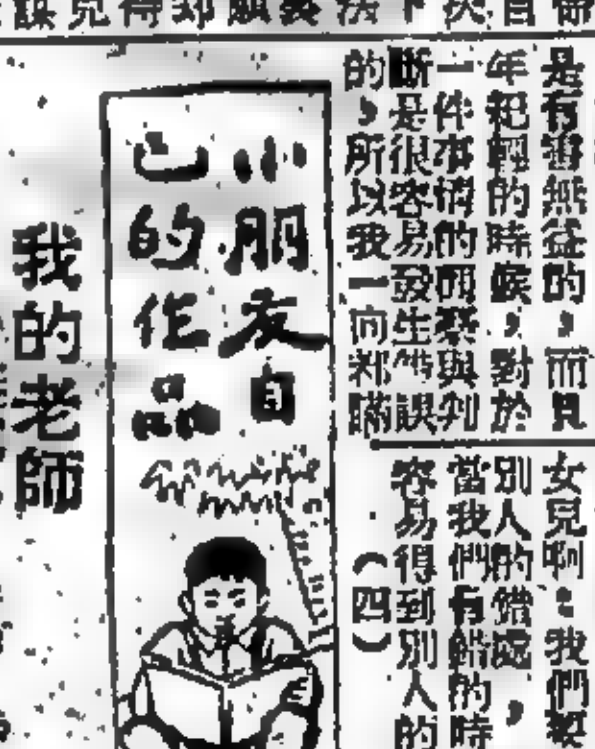 是有害無益的，而且
年紀輕的時候，對於
一件事情的觀察與判
斷是很容易發生錯誤
的，所以我一向都瞞
女兒啊：我們要
別人的錯處，
當我們有錯的時
容易得到別人的
（四）
小朋友自
己的作品
我的老師